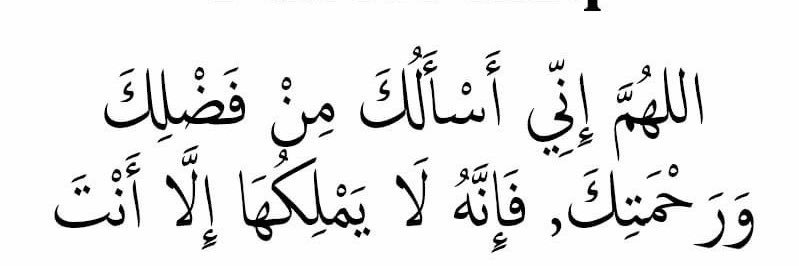 اللهُمَّ إِنِّي أَسْأَلُكَ مِنْ فَضْلِكَ
وَرَحْمَتِكَ, فَإِنَّهُ لَا يَمْلِكُهَا إِلَّا أَنْتَ